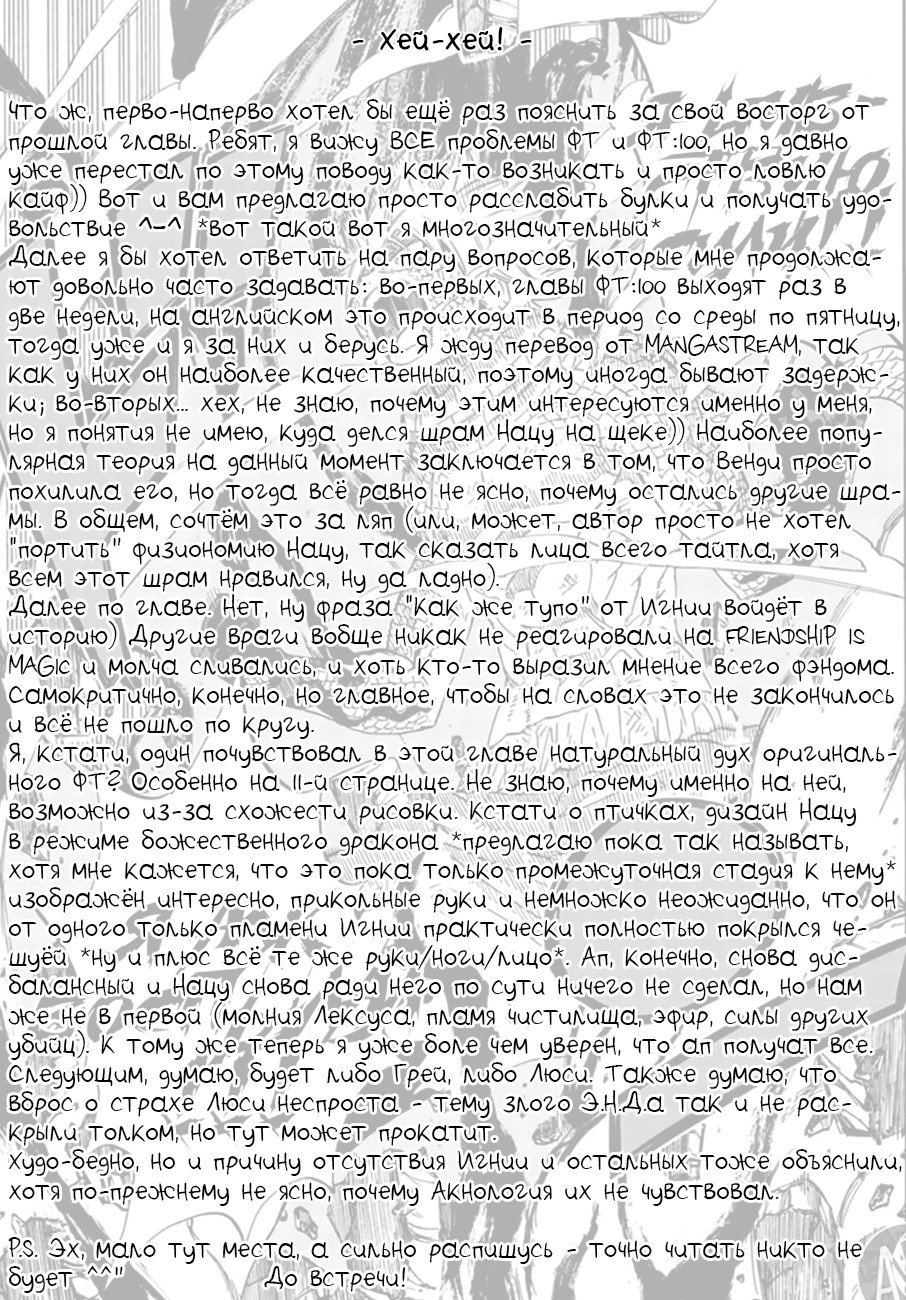 - Хей-хей! -
Что ж, перво-наперво хотел бы ещё раз пояснить за свой восторг от
прошлой главы. Ребят, я вижу ВСЕ проблемы ФТ и ФТ:100, но я давно
уже перестал по этому поводу как-то возникать и просто ловлю
кайф)) Вот и вам предлагаю просто расслабить булки и получать удо-
вольствие ^-^ *вот такой вот я многозначительный*
Далее я бы хотел ответить на пару вопросов, которые мне продолжа-
ют довольно часто задавать: во-первых, главы ФТ:100 выходят раз в
две недели, на английском это происходит в период со среды по пятницу,
тогда уже и я за них и берусь. Я жду перевод от MANGASTREAM, так
как у них он наиболее качественный, поэтому иногда бывают задерж-
ки; во-вторых... хех, не знаю, почему этим интересуются именно у меня,
но я понятия не имею, куда делся шрам Нацу на щеке)) Наиболее попу-
лярная теория на данный момент заключается в том, что Венди просто
похилила его, но тогда всё равно не ясно, почему остались другие шра-
мы. В общем, сочтём это за ляп (или, может, автор просто не хотел
"портить" физиономию Нацу, так сказать лица всего тайтла, хотя
всем этот шрам нравился, ну да ладно).
Далее по главе. Нет, ну фраза "Как же тупо" от Игнии войдёт в
историю) Другие враги вобще никак не реагировали на FRIENDSHIP IS
MAGIC и молча сливались, и хоть кто-то выразил мнение всего фэндома.
Самокритично, конечно, но главное, чтобы на словах это не закончилось
и всё не пошло по кругу.
Я, кстати, один почувствовал в этой главе натуральный дух оригиналь-
ного ФТ? Особенно на 11-й странице. Не знаю, почему именно на ней,
возможно из-за схожести рисовки. Кстати о птичках, дизайн Нацу
в режиме божественного дракона *предлагаю пока так называть,
хотя мне кажется, что это пока только промежуточная стадия к нему*
изображён интересно, прикольные руки и немножко неожиданно, что он
от одного только пламени Игнии практически полностью покрылся че-
шуёй *ну и плюс всё те же руки/ноги/лицо*. Ап, конечно, снова дис-
балансный и Нацу снова ради него по сути ничего не сделал, но нам
же не в первой (молния Лексуса, пламя чистилища, эфир, силы других
убийц). К тому же теперь я уже боле чем уверен, что ап получат все.
Следующим, думаю, будет либо Грей, либо Люси. Также думаю, что
вброс о страхе Люси неспроста - тему злого Э.Н.Д.а так и не рас-
крыли толком, но тут может прокатит.
Худо-бедно, но и причину отсутствия Игнии и остальных тоже объяснили,
хотя по-прежнему не ясно, почему Акнология их не чувствовал.
P.S. Эх, мало тут места, а сильно распишусь - точно читать никто не
будет ^^" До встречи!